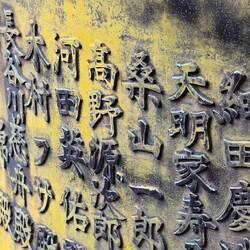 田慶
天明家寿
桑山一郎
高野源次郎
河田英佑
大村フサ殿
長谷川徳舟殿